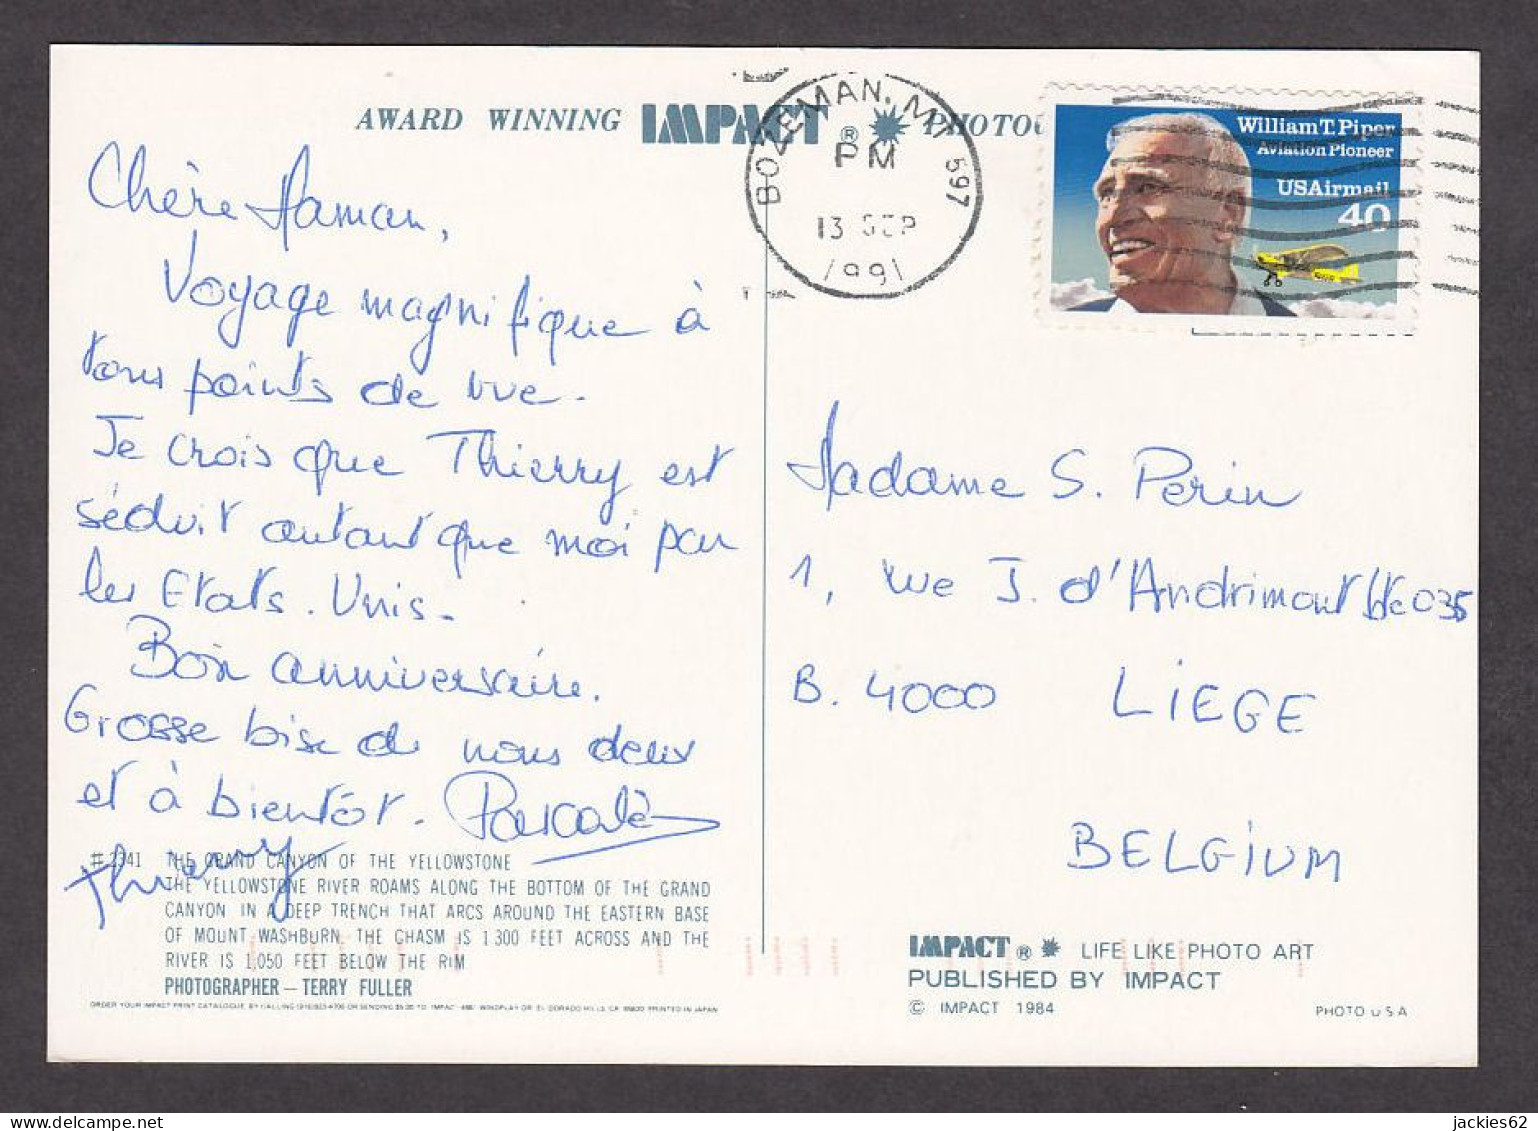 AWARD WINNING IMPACT ® PHOTO
BOZEMAN, MT 597
PM
13 SEP
1991
William T. Piper
Aviation Pioneer
USAirmail
40
Chère Maman,
Voyage magnifique à
tous points de vue.
Je crois que Thierry est
séduit autant que moi par
les Etats-Unis.
Bon anniversaire.
Grosse bise de nous deux
et à bientôt. Pascale
Thierry
Madame S. Perin
1, rue J. d'Andrimont bte 035
B. 4000 LIEGE
BELGIUM
#2341 THE GRAND CANYON OF THE YELLOWSTONE
THE YELLOWSTONE RIVER ROAMS ALONG THE BOTTOM OF THE GRAND
CANYON IN A DEEP TRENCH THAT ARCS AROUND THE EASTERN BASE
OF MOUNT WASHBURN. THE CHASM IS 1300 FEET ACROSS AND THE
RIVER IS 1,050 FEET BELOW THE RIM
PHOTOGRAPHER — TERRY FULLER
ORDER YOUR IMPACT PRINT CATALOGUE BY CALLING (916) 933-4700 OR SENDING $5.00 TO IMPACT 4961 WINDPLAY DR. EL DORADO HILLS, CA 95630 PRINTED IN JAPAN
IMPACT ® LIFE LIKE PHOTO ART
PUBLISHED BY IMPACT
© IMPACT 1984
PHOTO U S A
jackies62